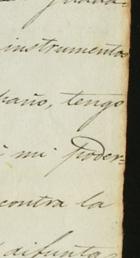 instrumentos
paño, tengo
mi poder-
contra la
difunta